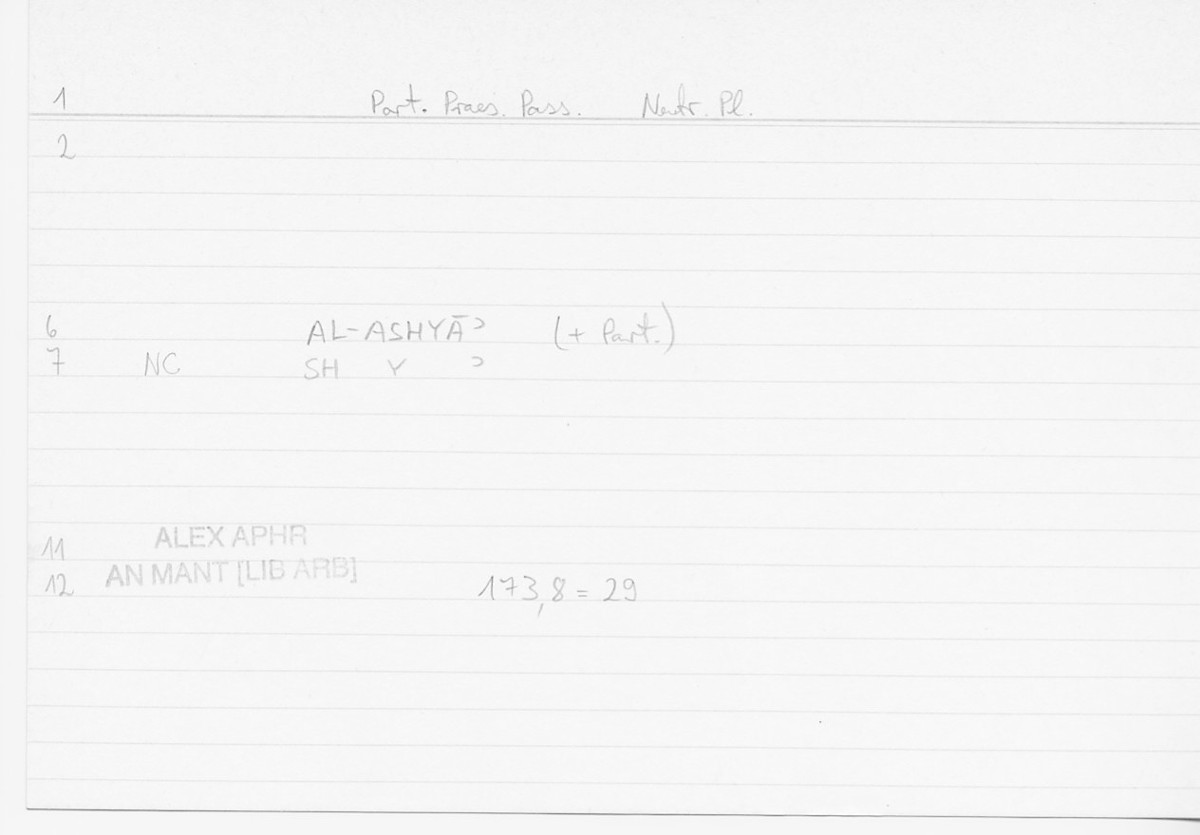 1 Part. Praes. Pass. Neutr. Pl.
2
6 AL-ASHYĀʾ (+ Part.)
7 NC SH Y ʾ
11 ALEX APHR
12 AN MANT [LIB ARB] 173,8 = 29